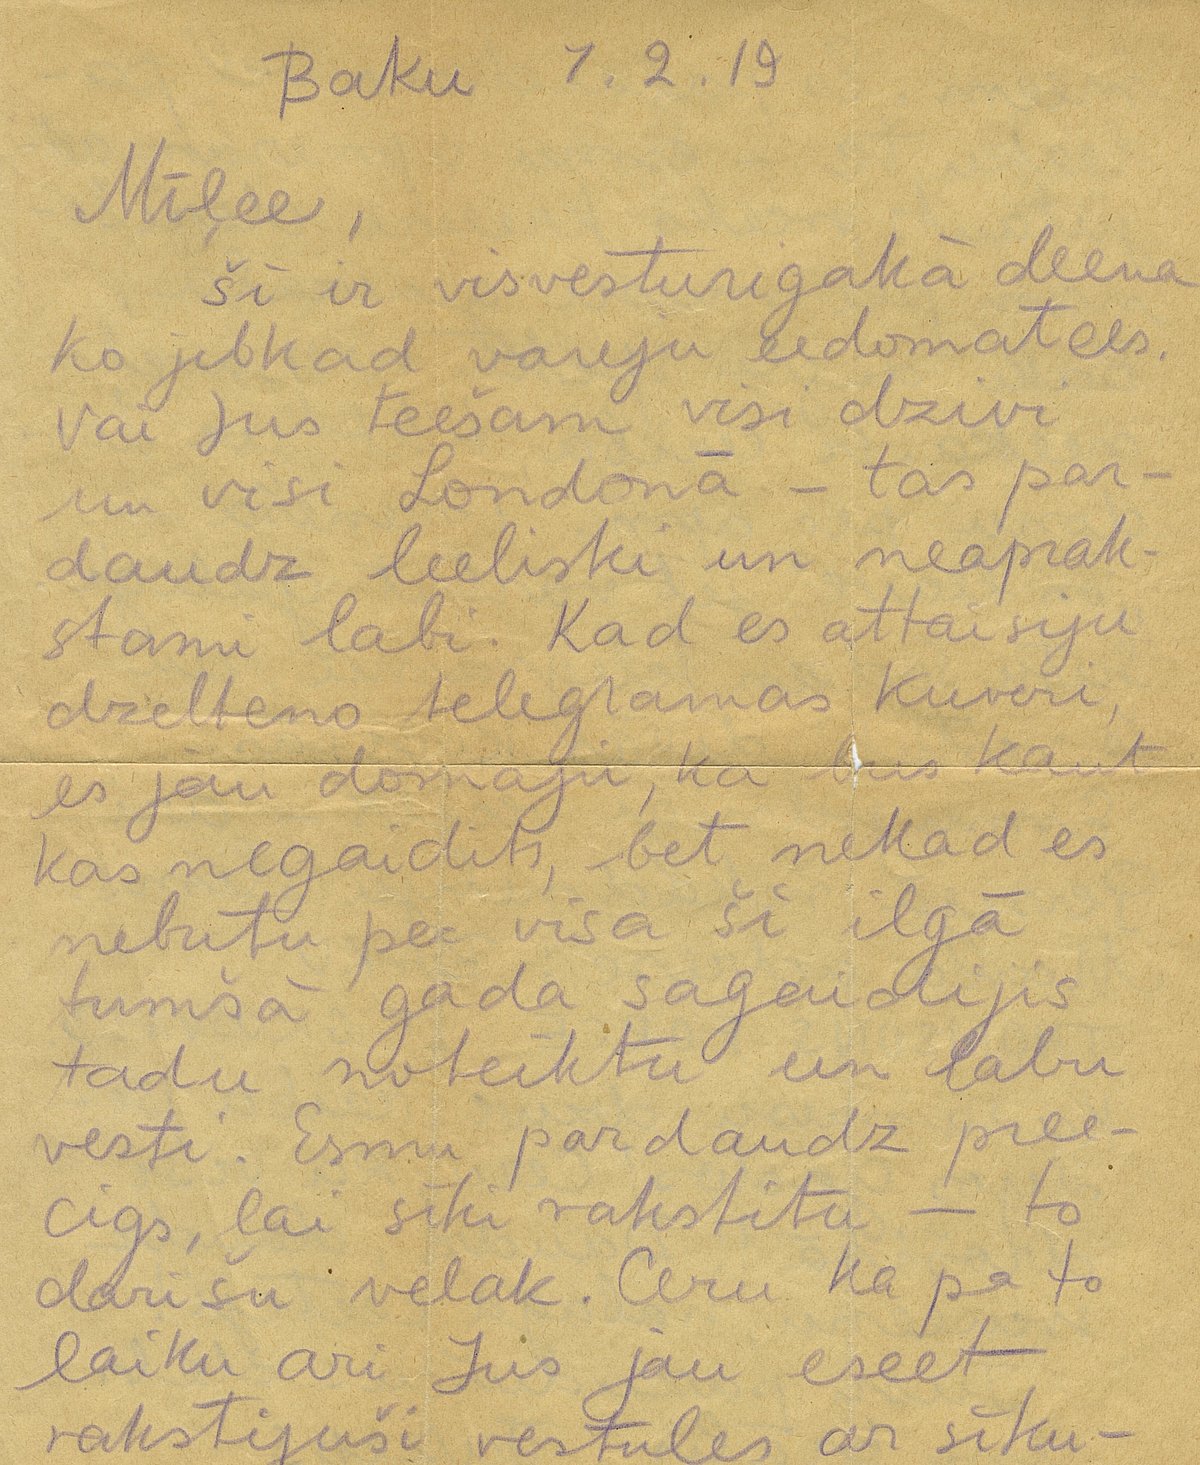 Baku 7.2.19
Mīļee,
šī ir visvesturigakā deena
ko jebkad vareju eedomatees.
Vai Jus teešam visi dzivi
un visi Londonā – tas par-
daudz leeliski un neaprak-
stami labi. Kad es attaisiju
dzelteno telegramas kuveri,
es jau domaju, ka bus kaut
kas negaidits, bet nekad es
nebutu pec visa šī ilgā
tumšā gada sagaidijis
tadu noteiktu un labu
vesti. Esmu pardaudz pree-
cigs, lai sīki rakstitu – to
darišu velak. Ceru ka pa to
laiku ari Jus jau eseet
rakstijuši vestules ar sīku-